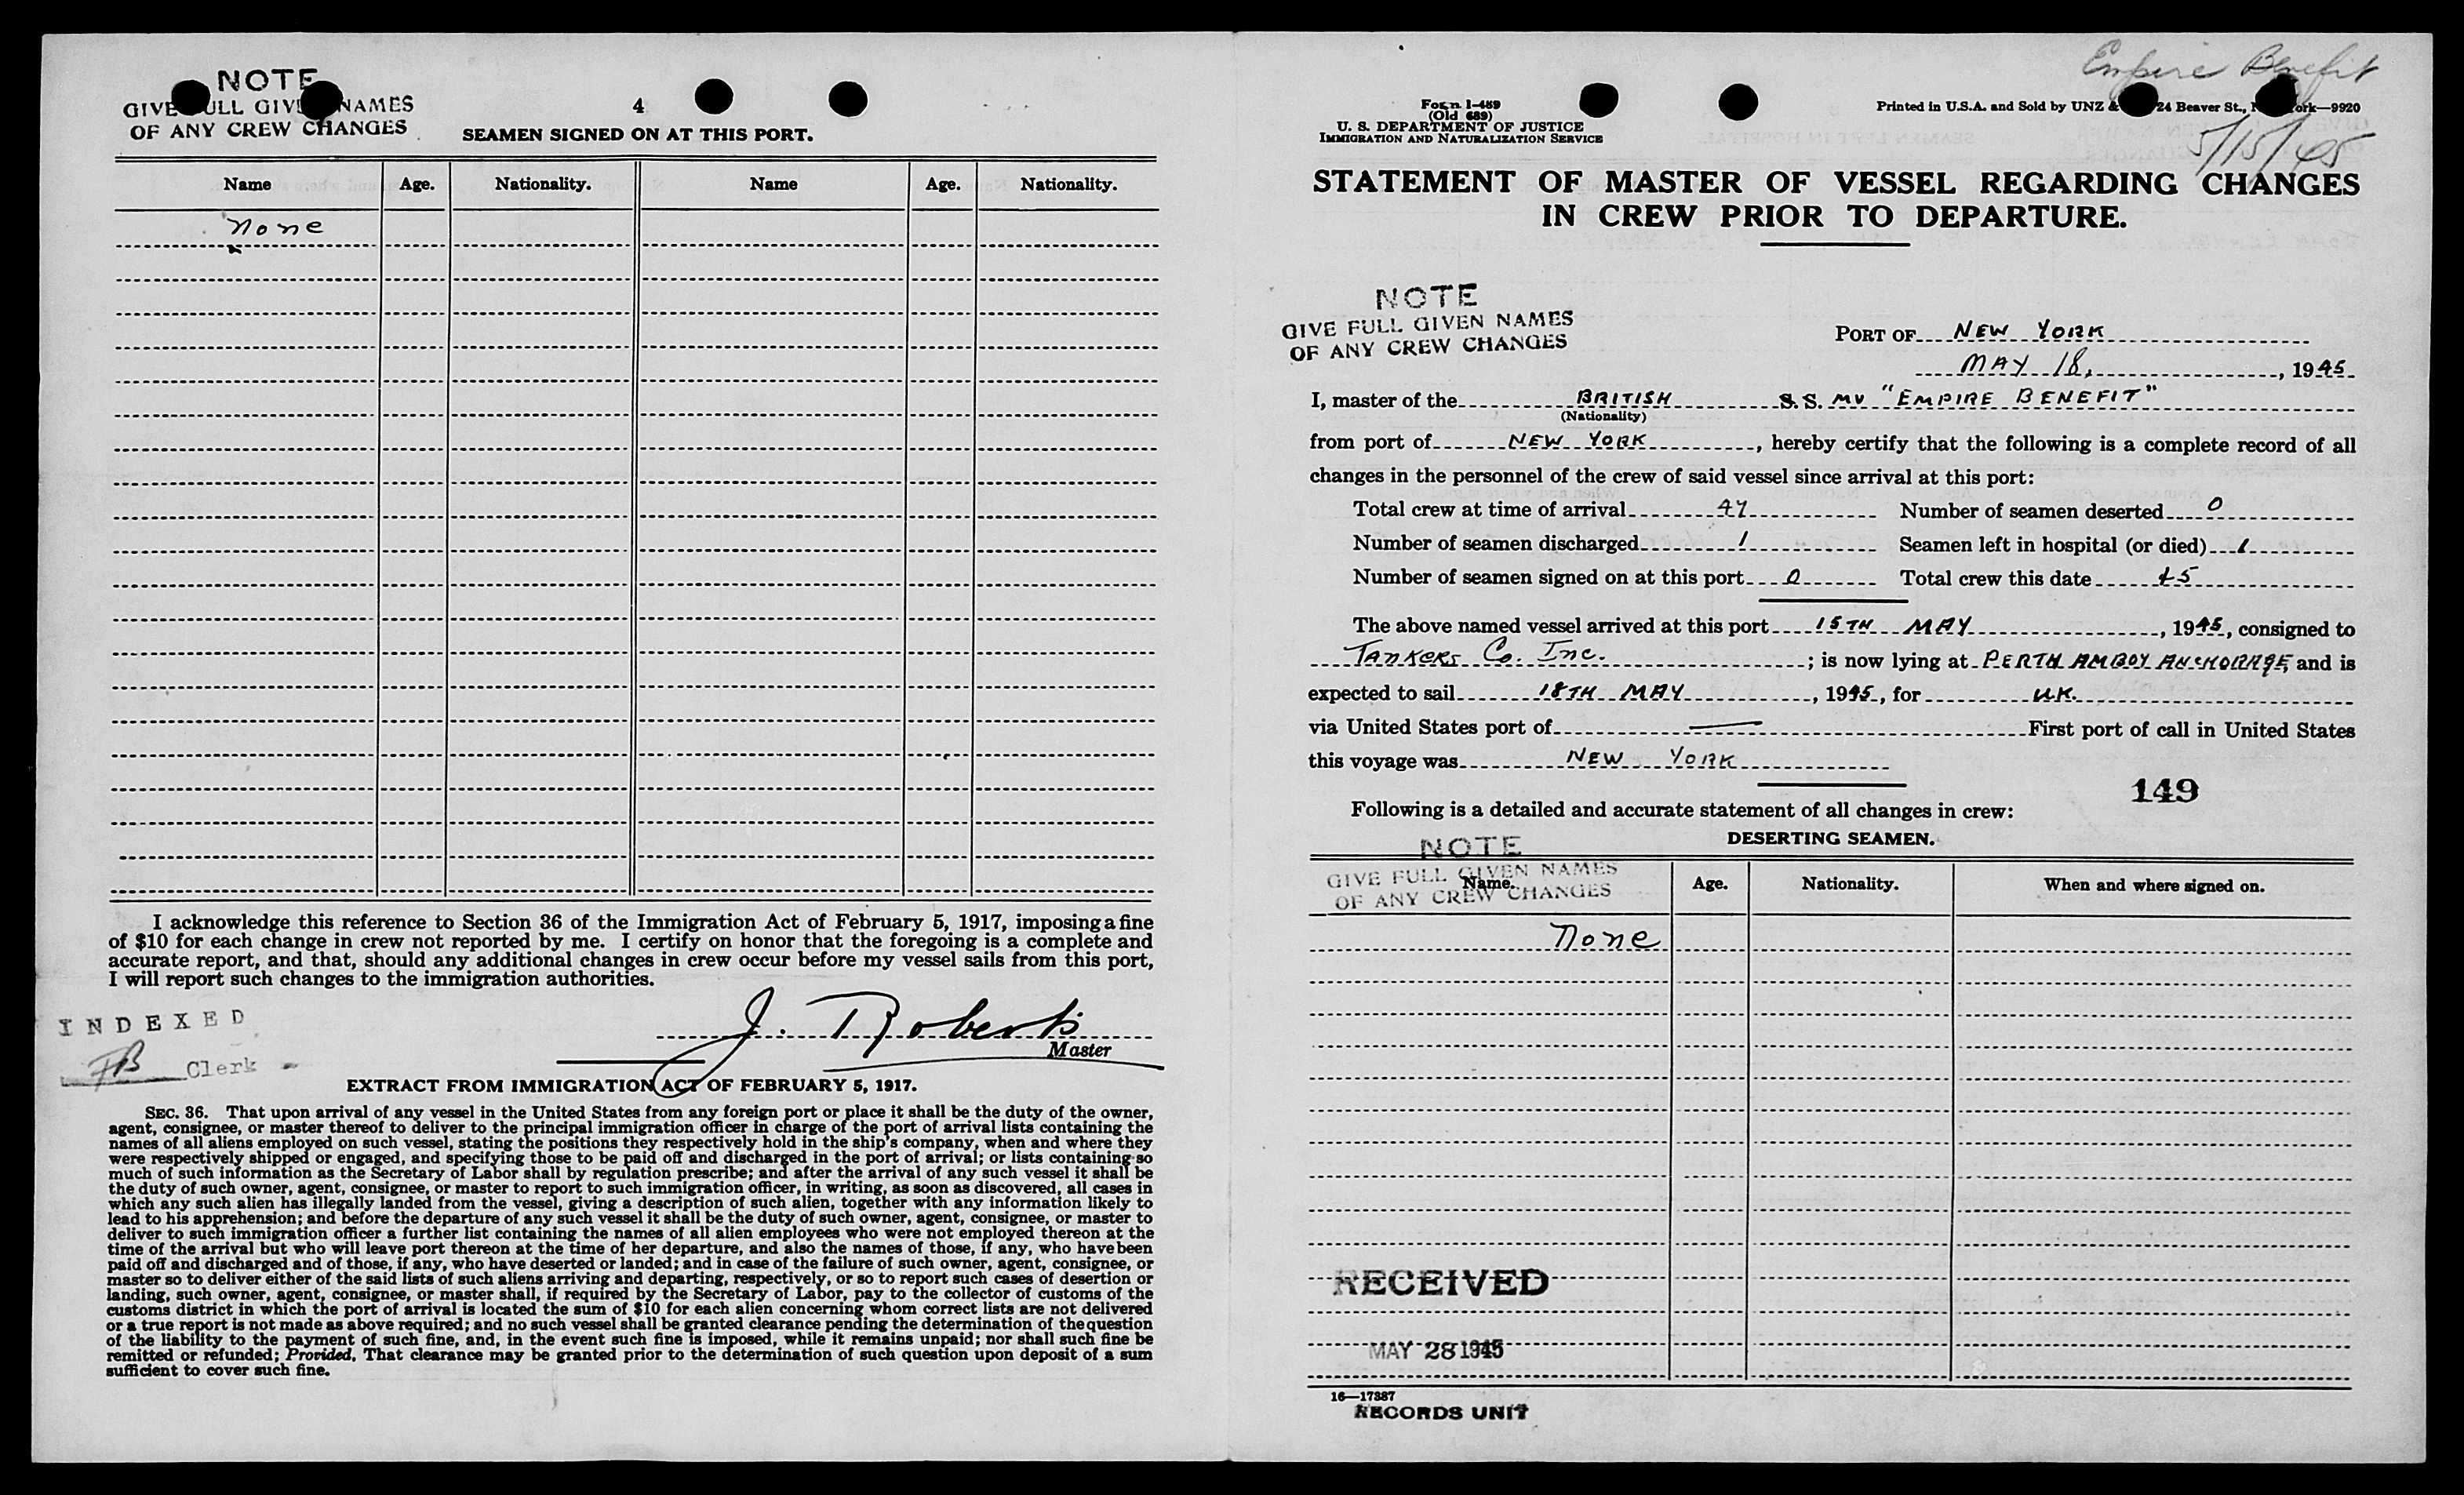 NOTE
GIVE FULL GIVEN NAMES
OF ANY CREW CHANGES
4
SEAMEN SIGNED ON AT THIS PORT.
Name Age. Nationality. Name Age. Nationality.
None
I acknowledge this reference to Section 36 of the Immigration Act of February 5, 1917, imposing a fine
of $10 for each change in crew not reported by me. I certify on honor that the foregoing is a complete and
accurate report, and that, should any additional changes in crew occur before my vessel sails from this port,
I will report such changes to the immigration authorities.
J. Roberts
Master
INDEXED
Clerk
EXTRACT FROM IMMIGRATION ACT OF FEBRUARY 5, 1917.
SEC. 36. That upon arrival of any vessel in the United States from any foreign port or place it shall be the duty of the owner,
agent, consignee, or master thereof to deliver to the principal immigration officer in charge of the port of arrival lists containing the
names of all aliens employed on such vessel, stating the positions they respectively hold in the ship's company, when and where they
were respectively shipped or engaged, and specifying those to be paid off and discharged in the port of arrival; or lists containing so
much of such information as the Secretary of Labor shall by regulation prescribe; and after the arrival of any such vessel it shall be
the duty of such owner, agent, consignee, or master to report to such immigration officer, in writing, as soon as discovered, all cases in
which any such alien has illegally landed from the vessel, giving a description of such alien, together with any information likely to
lead to his apprehension; and before the departure of any such vessel it shall be the duty of such owner, agent, consignee, or master to
deliver to such immigration officer a further list containing the names of all alien employees who were not employed thereon at the
time of the arrival but who will leave port thereon at the time of her departure, and also the names of those, if any, who have been
paid off and discharged and of those, if any, who have deserted or landed; and in case of the failure of such owner, agent, consignee, or
master so to deliver either of the said lists of such aliens arriving and departing, respectively, or so to report such cases of desertion or
landing, such owner, agent, consignee, or master shall, if required by the Secretary of Labor, pay to the collector of customs of the
customs district in which the port of arrival is located the sum of $10 for each alien concerning whom correct lists are not delivered
or a true report is not made as above required; and no such vessel shall be granted clearance pending the determination of the question
of the liability to the payment of such fine, and, in the event such fine is imposed, while it remains unpaid; nor shall such fine be
remitted or refunded; Provided, That clearance may be granted prior to the determination of such question upon deposit of a sum
sufficient to cover such fine.
Empire Benefit
5/15/45
Form I-489
(Old 689)
U. S. DEPARTMENT OF JUSTICE
IMMIGRATION AND NATURALIZATION SERVICE
Printed in U.S.A. and Sold by UNZ & 24 Beaver St., New York—9920
STATEMENT OF MASTER OF VESSEL REGARDING CHANGES
IN CREW PRIOR TO DEPARTURE.
NOTE
GIVE FULL GIVEN NAMES
OF ANY CREW CHANGES
PORT OF NEW YORK
MAY 18, , 1945
I, master of the BRITISH S.S. MV "EMPIRE BENEFIT"
(Nationality)
from port of NEW YORK , hereby certify that the following is a complete record of all
changes in the personnel of the crew of said vessel since arrival at this port:
Total crew at time of arrival 47 Number of seamen deserted 0
Number of seamen discharged 1 Seamen left in hospital (or died) 1
Number of seamen signed on at this port 0 Total crew this date 45
The above named vessel arrived at this port 15TH MAY , 1945, consigned to
TANKERS Co. Inc. ; is now lying at PERTH AMBOY ANCHORAGE and is
expected to sail 18TH MAY , 1945, for U.K.
via United States port of — First port of call in United States
this voyage was NEW YORK
149
Following is a detailed and accurate statement of all changes in crew:
DESERTING SEAMEN.
NOTE
GIVE FULL GIVEN NAMES
OF ANY CREW CHANGES
Name. Age. Nationality. When and where signed on.
None
RECEIVED
MAY 28 1945
16—17387
RECORDS UNIT